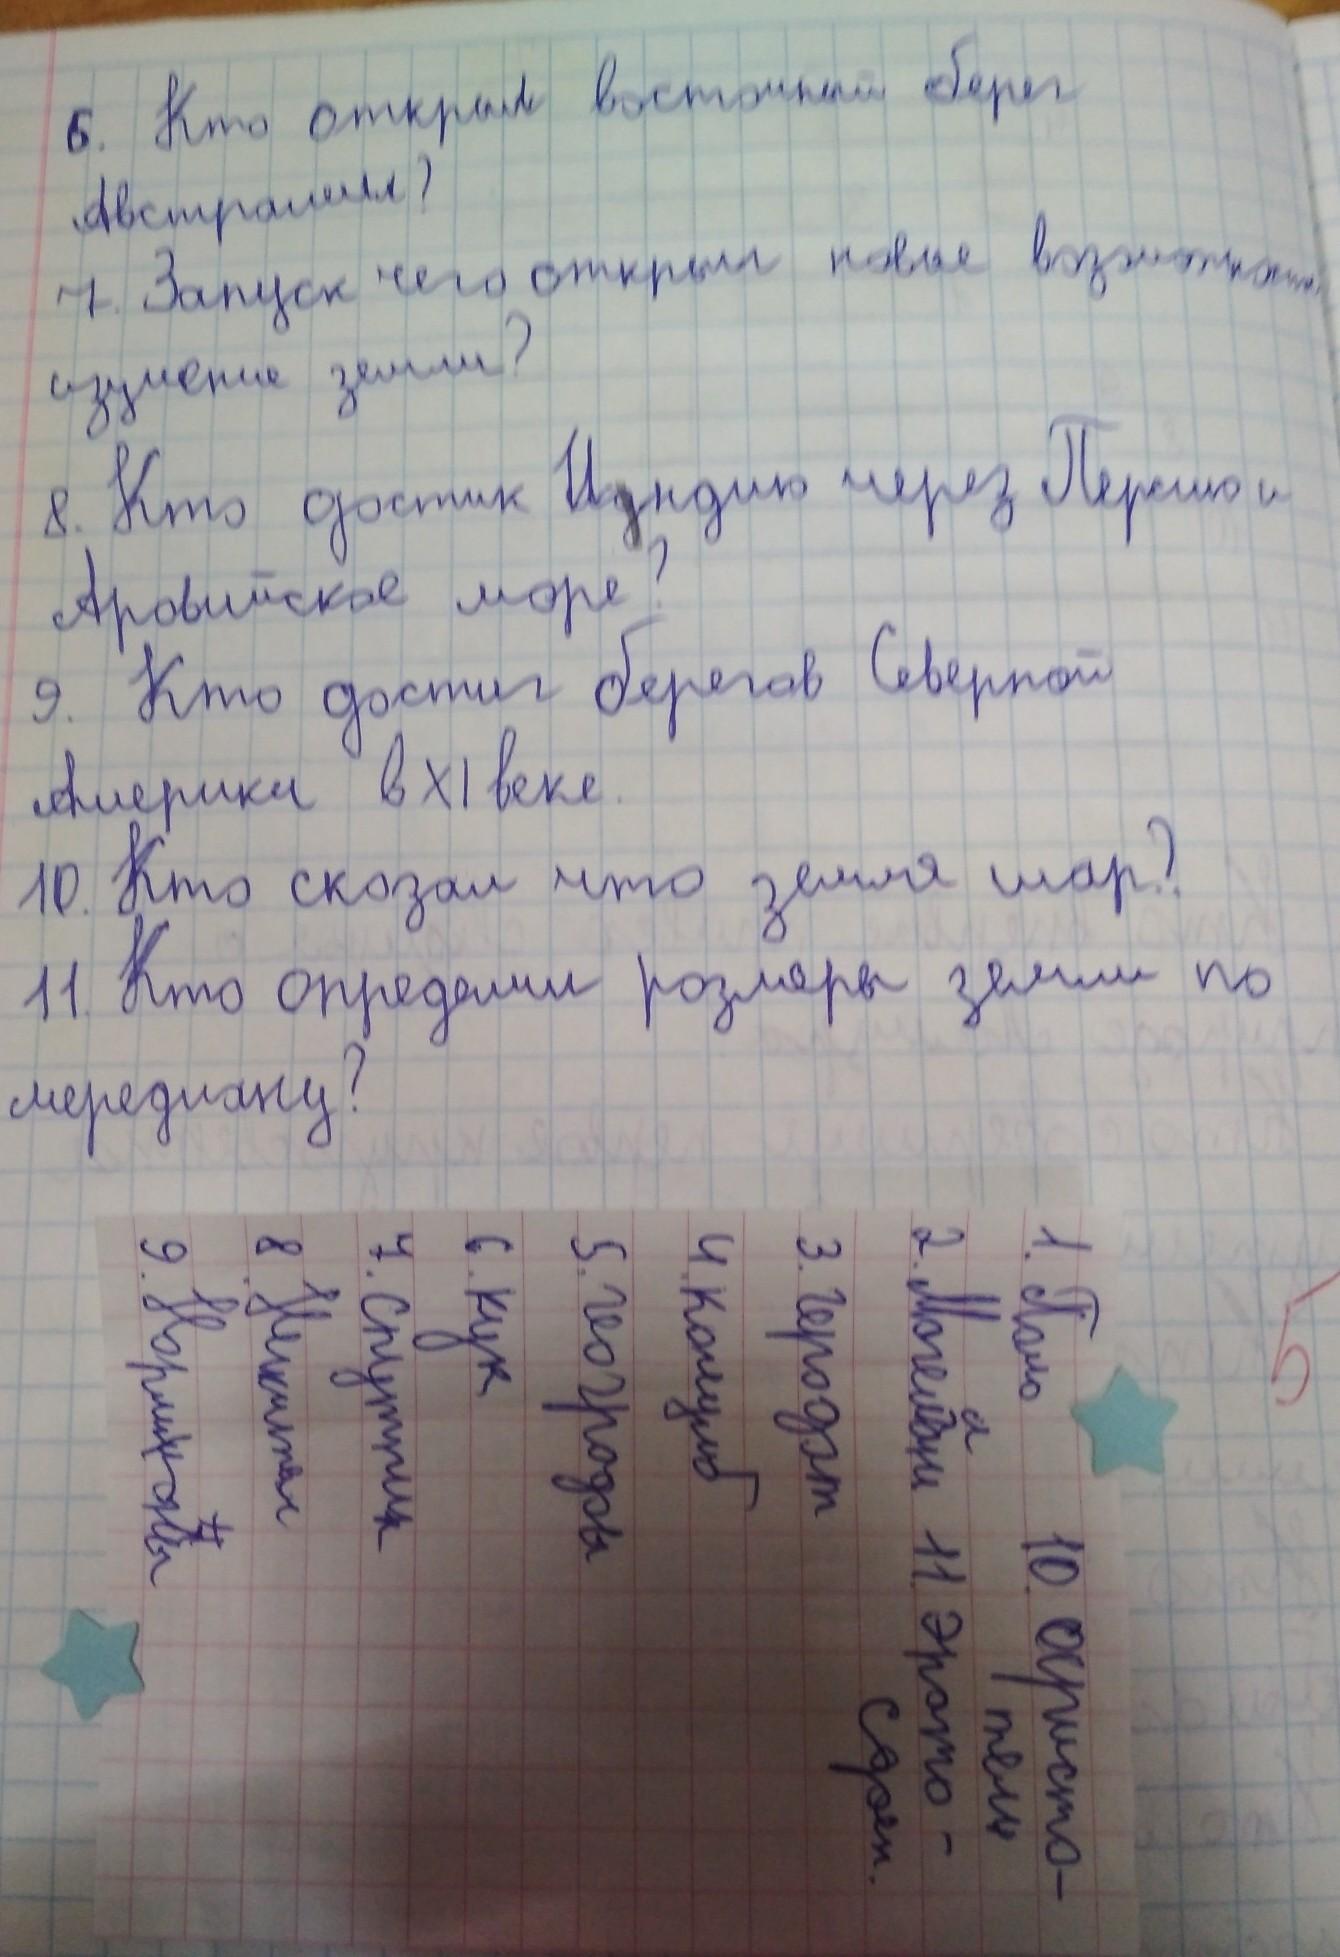 6. Кто открыл восточный берег
Австралии?
7. Запуск чего открыл новые возможности
изучение земли?
8. Кто достик Индию через Персию и
Аровийское море?
9. Кто достиг берегов Северной
Америки в XI веке.
10. Кто сказал что земля шар?
11. Кто определил розмеры земли по
мередиану?
1. Поло
2. Могеллан
3. Геродот
4. Колумб
5. Географы
6. Кук
7. Спутник
8. Никитин
9. Норманы
10. Аристо-
тель
11. Эрато-
сфен.
5